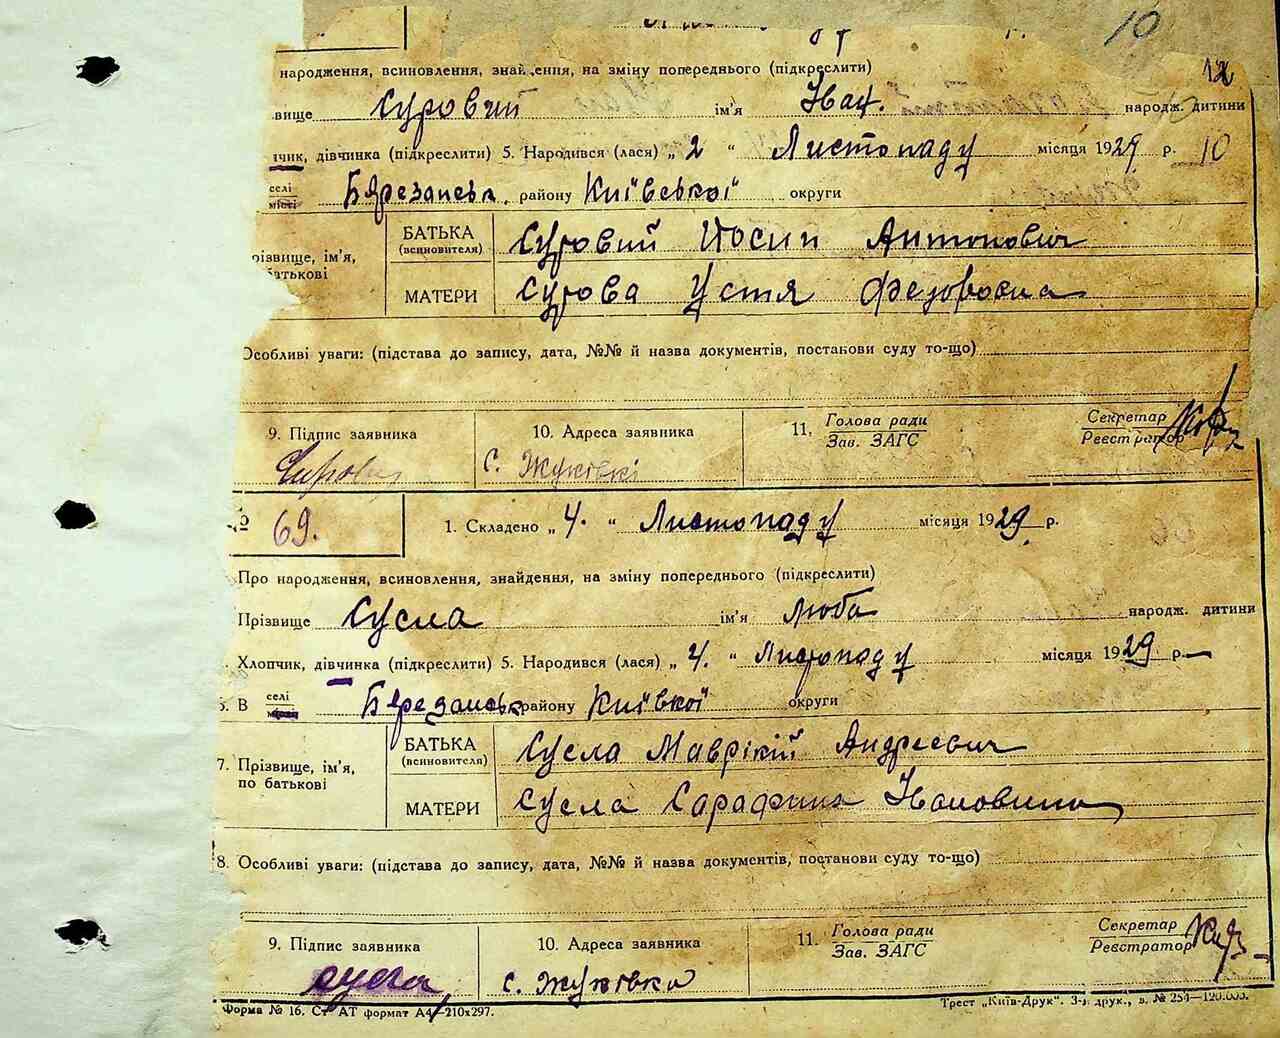 10
12
народження, всиновлення, знайдення, на зміну попереднього (підкреслити)
вище Суровий ім'я Іван. народж. дитини
чик, дівчинка (підкреслити) 5. Народився (лася) „ 2 “ Листопаду місяця 1929 р. 10
селі
місті Бярезанськ. району Київської округи
БАТЬКА (всиновителя) Суровий Йосип Антонович
різвище, ім'я,
батькові
МАТЕРИ Сурова Устя Федоровна
Особливі уваги: (підстава до запису, дата, №№ й назва документів, постанови суду то-що)
9. Підпис заявника 10. Адреса заявника 11. Голова ради
Зав. ЗАГС Секретар
Реєстратор
с. Жуківкі
№ 69. 1. Складено „ 4. “ Листопаду місяця 1929 р.
Про народження, всиновлення, знайдення, на зміну попереднього (підкреслити)
Прізвище Сусла ім'я Люба народж. дитини
Хлопчик, дівчинка (підкреслити) 5. Народився (лася) „ 4. “ Листопаду місяця 1929 р.
6. В селі
місті Бярезанськ району Київкої округи
БАТЬКА (всиновителя) Сусла Маврікій Андреевич
7. Прізвище, ім'я,
по батькові
МАТЕРИ Сусла Сарафина Івановина
8. Особливі уваги: (підстава до запису, дата, №№ й назва документів, постанови суду то-що)
9. Підпис заявника 10. Адреса заявника 11. Голова ради
Зав. ЗАГС Секретар
Реєстратор
сусла с. Жуківка
Форма № 16. Ст АТ формат А4—210х297. Трест „Київ-Друк“. 3-я друк., в. № 254—120.000.